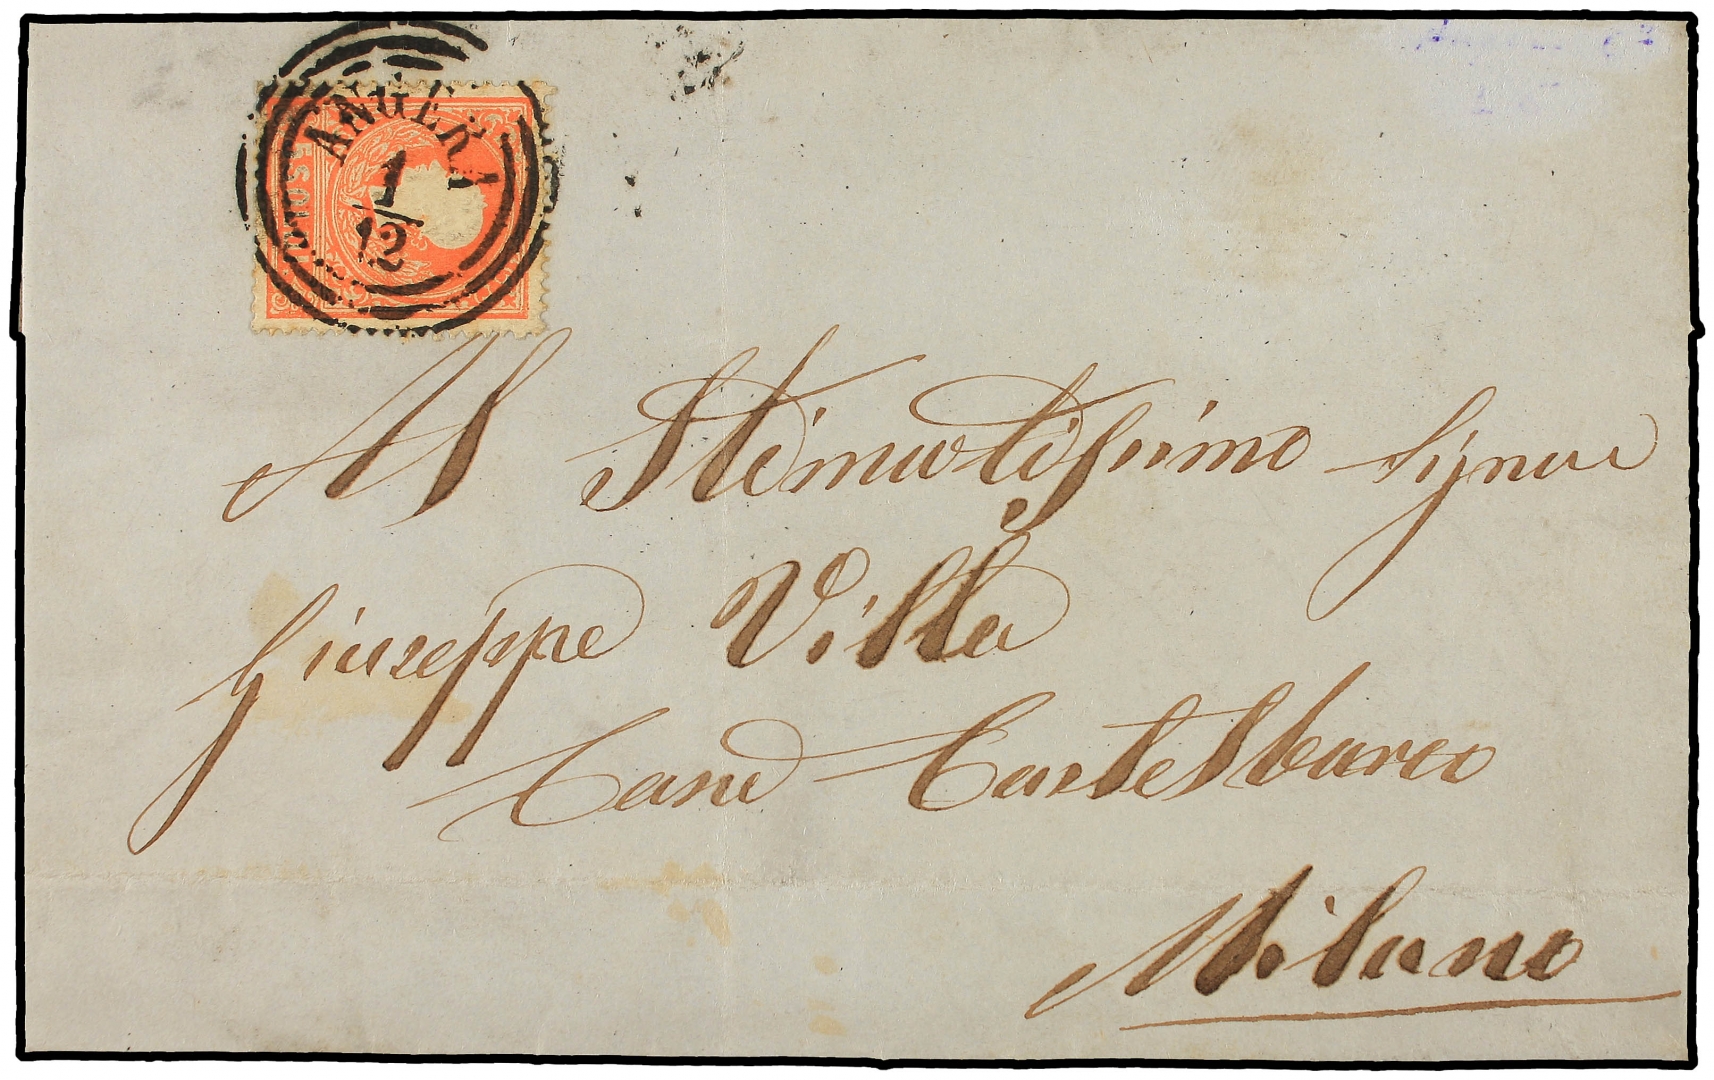 ANGERA
1
12
5 SOLDI
Al Stimatissimo Signor
Giuseppe Villa
Casa Castelbarco
Milano